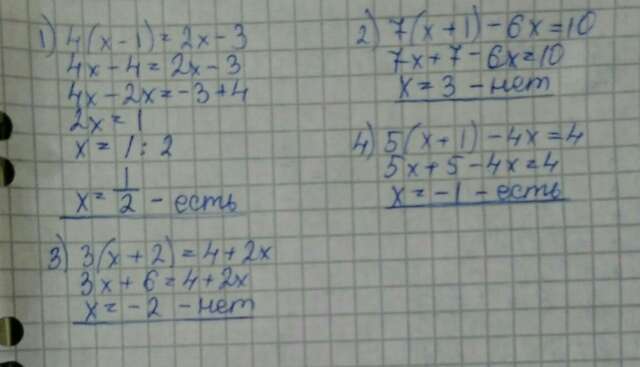 1) 4(x-1)=2x-3
4x-4=2x-3
4x-2x=-3+4
2x=1
x=1:2
x=1/2 - есть
2) 7(x+1)-6x=10
7x+7-6x=10
x=3 - нет
3) 3(x+2)=4+2x
3x+6=4+2x
x=-2 - нет
4) 5(x+1)-4x=4
5x+5-4x=4
x=-1 - есть